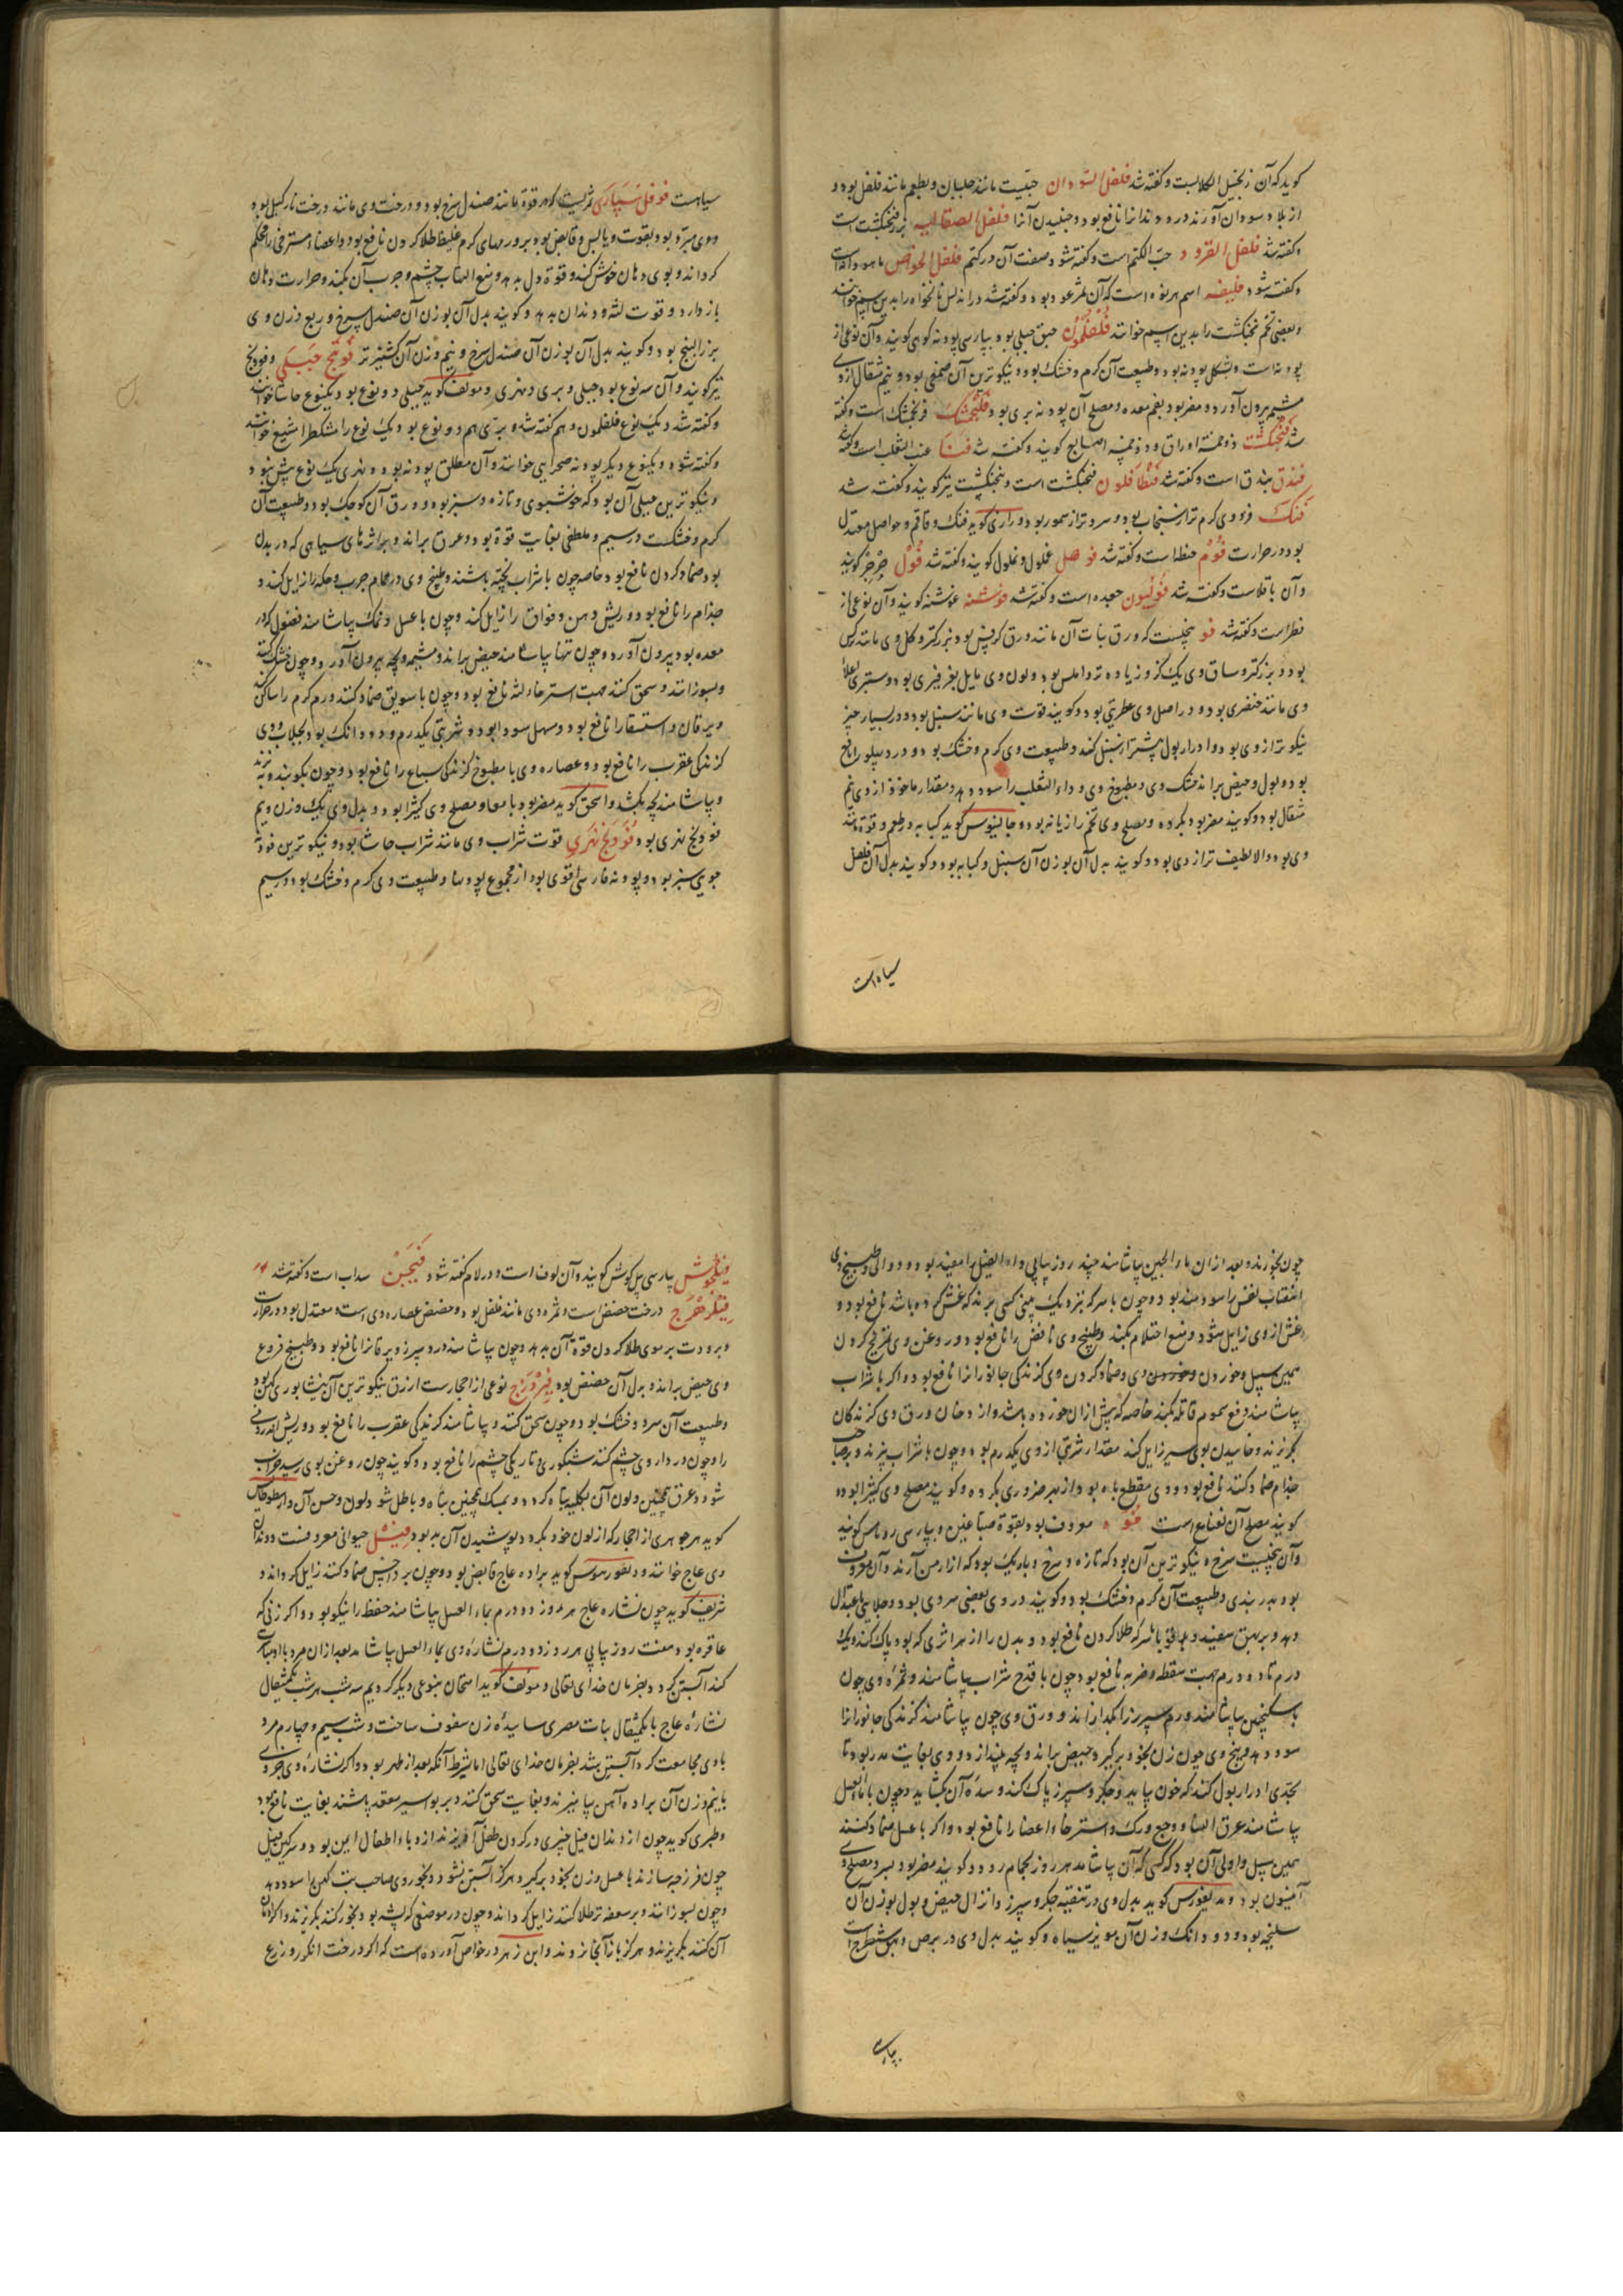 کویند که آن زنجبیل الکلابست و کفته شد فلفل السودان حبیّست مانند جلبان و بطعم مانند فلفل بود و
از بلاد سودان آورند درد دندانرا نافع بود و جنبیدن آنرا فلفل الصقالبه بزر فنجنکشت است
و کفته شد فلفل القرود حبّ الکتم است و کفته شود صفت آن در کتم فلفل الخواص ماهودانه است
و کفته شود فلیفه اسم هر نوه است که آن ثمر عود بود و کفته شد در اندلس نانخواه را بدین اسم خوانند
و بعضی تخم فنجنکشت را بدین اسم خوانند فُلْفُلمُون حبق جبلی بود و بپارسی پودنه کوهی کویند و آن نوعی از
پودنه است و بشکل پودنه بود و طبیعت آن کرم و خشک بود و نیکوترین آن صمغی بود و نیم مثقال از وی
مشیمه بیرون آورد و مضر بود بفم معده و مصلح آن پودنه بری بود فلنجمشک فرنجمشک است و کفته
شد فنجنکشت ذو خمسة اوراق و ذو خمسه اصابع کویند و کفته شد فنا عنب الثعلب است و کفته شد
فندق بندق است و کفته شد فنطافلون فنجنکشت است و پنجنکشت نیز کویند و کفته شد
فنک فرو وی کرم تر از سنجاب بود و سرد تر از سمور بود و رازی کوید فنک و قاقم و حواصل معتدل
بود در حرارت فوم حنطه است و کفته شد فوصل غملول و غملول کویند و کفته شد فول جرجر کویند
و آن باقلاست و کفته شد فولیون جعده است و کفته شد فوشنه غوشنه کویند و آن نوعی از
فطر است و کفته شد فو بیخیست که ورق نبات آن مانند ورق کرفس بود بزرکتر و کل وی مانند نرکس
بود و بزرکتر و ساق وی یک کز و زیاده تر و املس بود و لون وی مایل بفرفیری بود و ستبری اعلاء
وی مانند خنصری بود و در اصل وی عطریتی بود و کویند قوّت وی مانند سنبل بود و در بسیار چیز
نیکوتر از وی بود و ادرار بول بیشتر از سنبل کند و طبیعت وی کرم و خشک بود و درد پهلو را نافع
بود و بول و حیض براند خشک وی و مطبوخ وی و داء الثعلب را سود دهد و مقدار ماخوذ از وی نیم
مثقال بود و کویند مضر بود بکرده و مصلح وی تخم رازیانه بود و جالینوس کوید کبابه در طعم و قوّة مانند
وی بود و الا لطیف تر از وی بود و کویند بدل آن بوزن آن سنبل و کبابه بود و کویند بدل آن فلفل
سیاه است
سیاهست فوفل سپاری ثمریست که در قوّة مانند صندل سرخ بود و درخت وی مانند درخت نارکیل بود
و وی مبرّد بود بقوّت و یابس و قابض بود و بر ورمهای کرم غلیظ طلا کردن نافع بود و اعضاء مسترخی را محکم
کرداند و بوی دهان خوش کند و قوّة دل بدهد و منع التهاب چشم و جرب آن بکند و حرارت دهان
باز دارد و قوت لثه و دندان بدهد و کویند بدل آن بوزن آن صندل سرخ و ربع وزن وی
بزر البنج بود و کویند بدل آن بوزن آن صندل سرخ و نیم وزن آن کشنیز تر فودنج جبلی و فوتنج
نیز کویند و آن سه نوع بود جبلی و بری و نهری و مولف کوید جبلی دو نوع بود و یکنوع حاشا خوانند
و کفته شد و یک نوع فلفلمون و هم کفته شد و بری هم دو نوع بود و یک نوع را مشکطرامشیع خوانند
و کفته شود و یکنوع دیکر پودنه صحرایی خوانند و آن مطلق پودنه بود و نهری یک نوع بیش نبود
و نیکوترین جبلی آن بود که خوشبوی و تازه و سبز بود و ورق آن کوچک بود و طبیعت آن
کرم و خشکست در سیم و ملطفی بغایت قوّة بود و عرق براند و بر اثرهای سیاهی که در بدن
بود ضماد کردن نافع بود و خاصه چون با شراب پخته باشند و طبیخ وی در حمام جرب و حکه را زایل کند و
جذام را نافع بود و ریش دهن و فواق را زایل کند و چون با عسل و نمک بیاشامند فضول که در
معده بود بیرون آورد و چون تنها بیاشامند حیض براند و مشیمه و بچه بیرون آورد و چون خشک کنند
و بسوزانند و سحق کنند جهت استرخاء لثه نافع بود و چون با سویق ضماد کنند ورم کرم را ساکن کند
و یرقان و استسقا را نافع بود و مسهل سودا بود و شربتی یکدرم و دو دانک بود بجلاب و وی
کزندکی عقرب را نافع بود و عصاره وی با مطبوخ کزندکی سباع را نافع بود و چون بکوبند و بپزند
و بیاشامند بچه بکشد و اسحق کوید مضر بود بامعا و مصلح وی کتیرا بود و بدل وی یک وزن و نیم
فودنج نهری بود فودنج نهری قوت شراب وی مانند شراب حاشا بود و نیکوترین فودنج
جویی سبز بود و پودنه فارسی اقوی بود از مجموع پودنها و طبیعت وی کرم و خشک بود در سیم
چون بخورند و بعد از آن ماء الجبن بیاشامند چند روز پیاپی داء الفیل را مفید بود و دوالی و طبیخ وی
انتصاب نفس را سودمند بود و چون با سرکه بنزدیک بینی کسی برند که غش کرده باشد نافع بود و
غش از وی زایل شود و منع احتلام بکند و طبیخ وی نافض را نافع بود و روغن وی تمریخ کردن
همین سبیل و خوردن وی و ضماد کردن وی کزندکی جانورانرا نافع بود و اکر با شراب
بیاشامند دفع سموم قاتله بکند خاصه که پیش از آن خورده باشد و از دخان ورق وی کزندکان
بکریزند و خاییدن بوی سیر زایل کند مقدار شربتی از وی یکدرم بود و چون با شراب بپزند و بر صاحب
جذام ضماد کنند نافع بود و وی مقطع باه بود و از بهر ضرری بکرده و کویند مصلح وی کتیرا بود و
کویند مصلح آن نعناع است فوه معروف بود بقوة صباغین و بپارسی روناس کویند
و آن بیخیست سرخ و نیکوترین آن بود که تازه و سرخ و باریک بود که از ارمن آرند و آن معروف
بود بدربندی و طبیعت آن کرم و خشک بود و کویند در وی بعضی سردی بود و جلایی باعتدال
دهد و بر بهق سفید و قوابا با سرکه طلا کردن نافع بود و بدن را از هر اثری که بود پاک کند و یک
درم تا دو درم جهت سقطه و ضربه نافع بود چون با قدح شراب بیاشامند و ثمره وی چون
با سکنجبین بیاشامند ورم سپرز را بکدازاند و ورق وی چون بیاشامند کزندکی جانورانرا
سود دهد و بیخ وی چون زن بخود برکیرد حیض براند و بچه بیندازد و وی بغایت مدر بود تا
بحدی ادرار بول کند که خون بیاید و جکر و سپرز پاک کند و سده آن بکشاید و چون با ماء العسل
بیاشامند عرق النسا و وجع ورک و استرخاء اعضا را نافع بود و اکر با عسل ضماد کنند
همین سبیل و اولی آن بود که کسی که آن بیاشامد هر روز بحمام رود و کویند مضر بود بسر و مصلح وی
انیسون بود و دیسقوریدوس کوید بدل وی در تنقیه جکر و سپرز و انزال حیض و بول بوزن آن
سلیخه بود و دو دانک وزن آن مویز سیاه و کویند بدل وی در برص و بهق شیطرج است
بپارسی
فیلجوش بپارسی پیل کوش کویند و آن لوف است و در لام کفته شود فیجن سداب است و کفته شد
فیلزهرج درخت حضض است و ثمره وی مانند فلفل بود و حضض عصاره وی است و معتدل بود در حرارت
و برودت بر موی طلا کردن قوّة آن بدهد و چون بیاشامند درد سپرز و یرقانرا نافع بود و طبیخ فروع
وی حیض براند و بدل آن حضض بود فیروزج نوعی از احجارست ازرق نیکوترین آن نیشابوری کهن بود
و طبیعت آن سرد و خشک بود و چون سحق کنند و بیاشامند کزیدکی عقرب را نافع بود و ریش اندرونی
را و چون در داروی چشم کنند شبکوری و تاریکی چشم را نافع بود و کویند چون روغن بوی رسید خراب
شود و عرق همچنین و لون آن بکلیه تباه کردد و بمسک همچنین تباه و باطل شود لون و حسن آن و ارسطوطالیس
کوید هر جوهری از احجار که از لون خود بکردد پوشیدن آن بد بود فیل حیوانی معروفست و دندان
وی عاج خوانند و دیسقوریدوس کوید براده عاج قابض بود و چون بر داحس ضماد کنند زایل کرداند و
شریف کوید چون نشاره عاج هر روز دو درم بماء العسل بیاشامند حفظ را نیکو بود و اکر زنی که
عاقره بود هفت روز پیاپی هر روز دو درم نشاره وی بماء العسل بیاشامد بعد از آن مرد با او مباشرت
کند آبستن کردد بفرمان خدای تعالی و مولف کوید امتحان بنوعی دیکر کردیم سه شب هر شب یکمثقال
نشاره عاج با یکمثقال نبات مصری ساییده زن سفوف ساخت و شب سیم و چهارم مرد
با وی مجامعت کرد آبستن شد بفرمان خدای تعالی اما بشرط آنکه بعد از طهر بود و اکر نشاره وی جزوی
با نیم وزن آن براده آهن بیامیزند و بغایت سحق کنند و بر بواسیر مقعد پاشند بغایت نافع بود
و طبری کوید چون از دندان فیل چیزی در کردن طفل آویزند از وباء اطفال ایمن بود و سرکین فیل
چون فرزجه سازند با عسل و زن بخود برکیرد هرکز آبستن نشود و بخور وی صاحب تب کهن را سود دهد
و چون بسوزانند و بر سعفه تر طلا کنند زایل کرداند و چون در موضعی که پشه بود بخور کنند بکریزند و اکر دخان
آن کنند بکریزند و هرکز باز آنجا نروند و ابن زهر در خواص آورده است که اکر درخت انکور و زرع